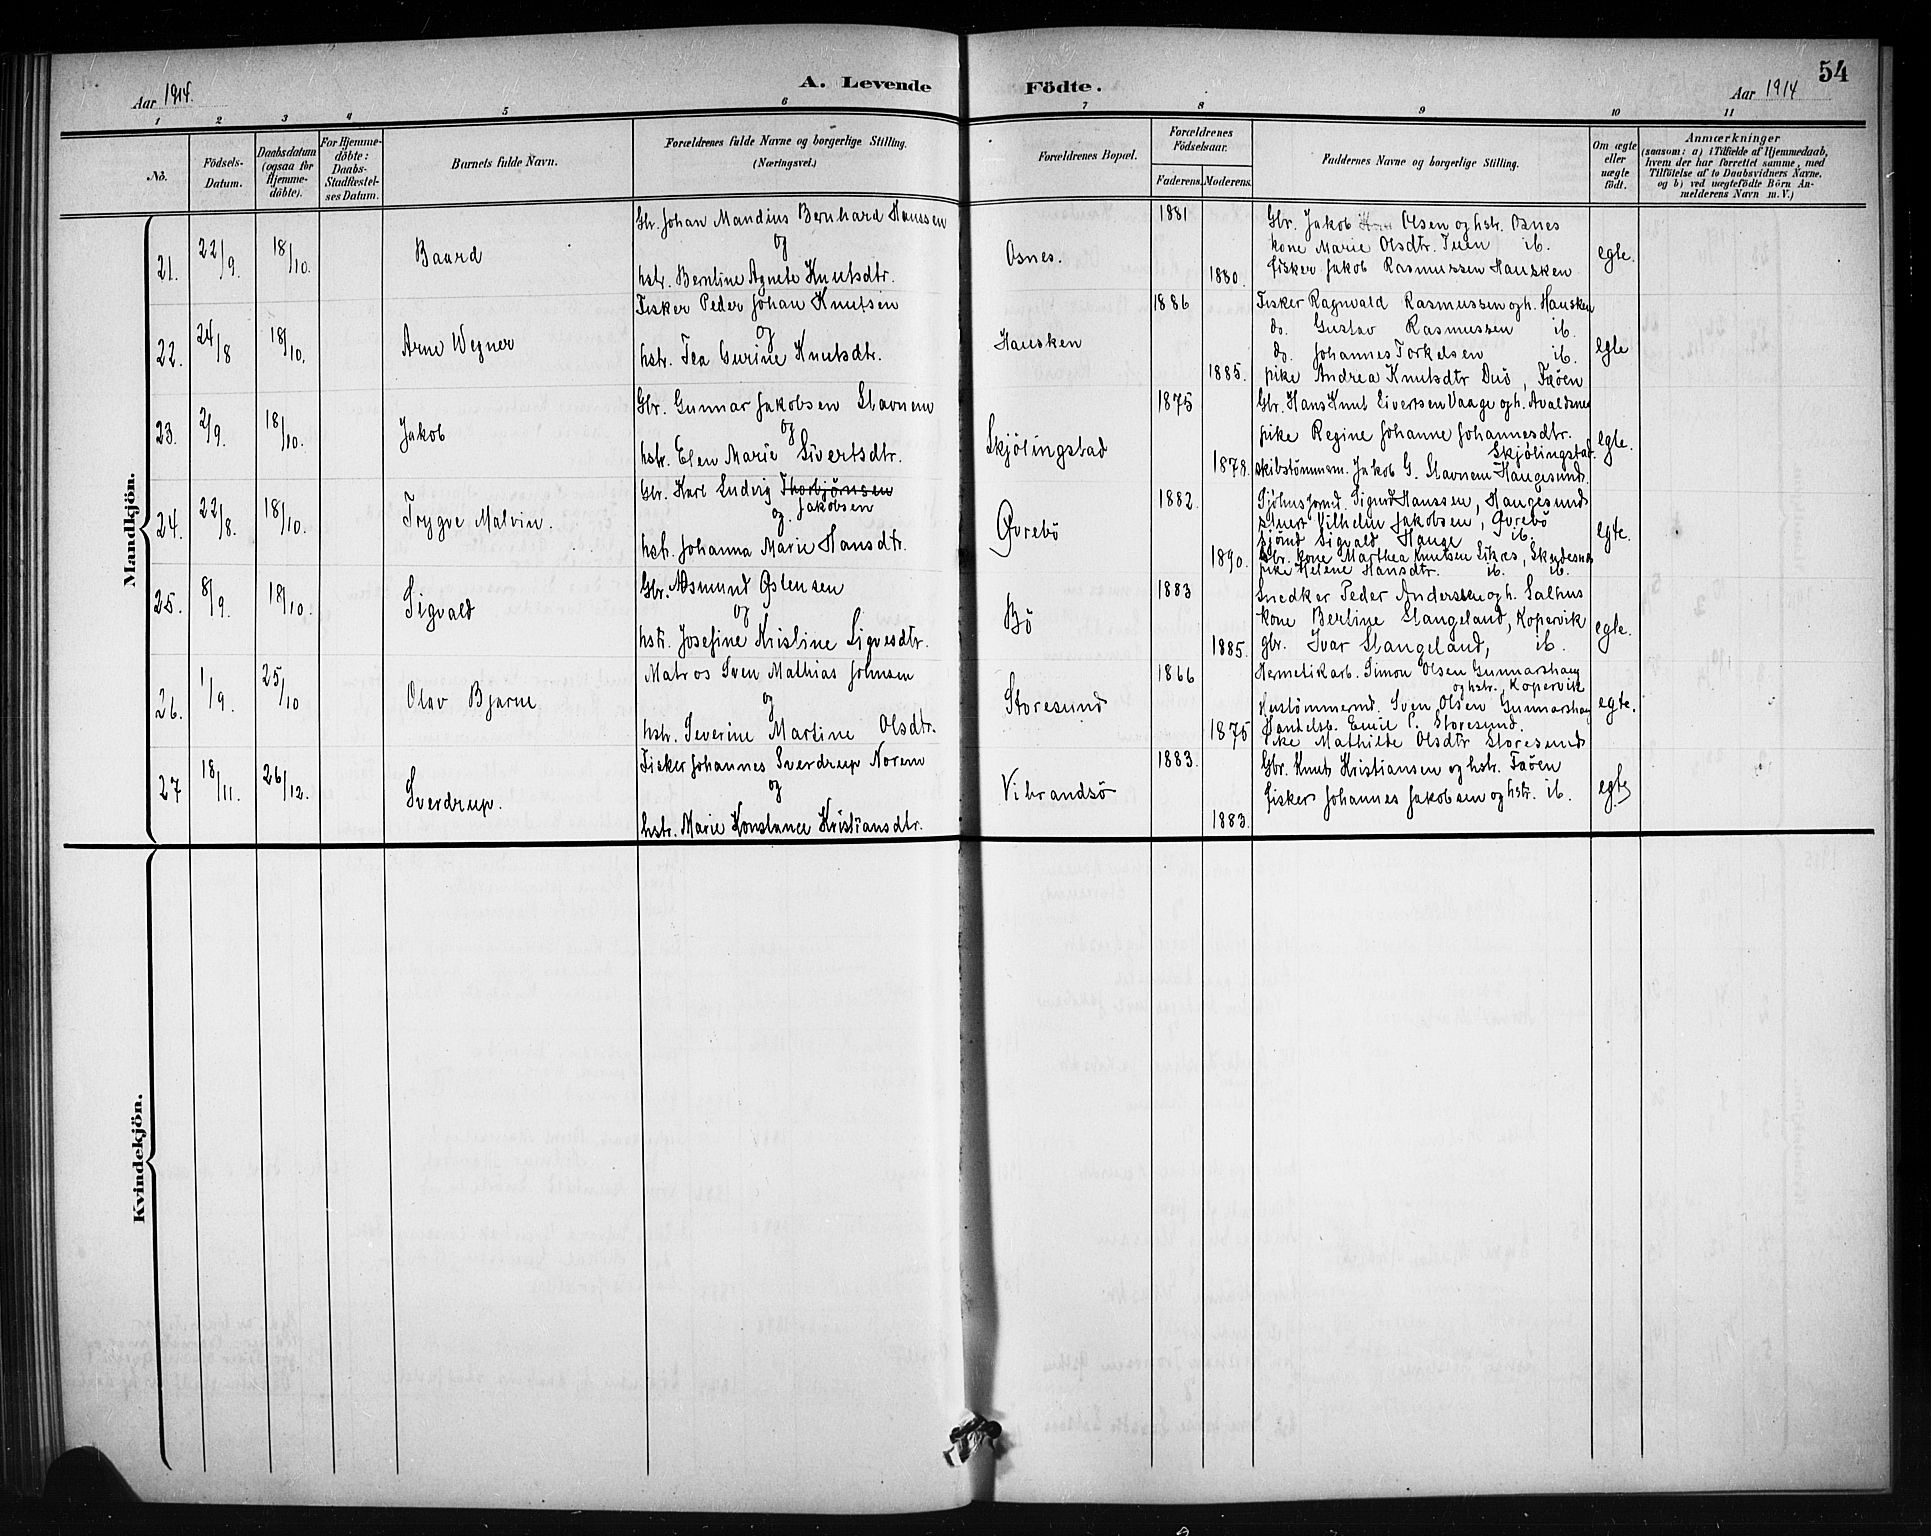 54
Aar 1914.
A. Levende Födte.
Aar 1914
1 2 3 4 5 6 7 8 9 10 11
No.
Födsels-Datum.
Daabsdatum (ogsaa for Hjemme-döbte).
For Hjemme-döbte: Daabs-Stadfæstel-ses Datum.
Barnets fulde Navn.
Forældrenes fulde Navne og borgerlige Stilling. (Næringsvei.)
Forældrenes Bopæl.
Forældrenes Födselsaar.
Faderens. Moderens.
Faddernes Navne og borgerlige Stilling.
Om ægte eller uægte födt.
Anmærkninger
(saasom: a) i Tilfælde af Hjemmedaab,
hvem der har forrettet samme, med
Tilföielse af to Daabsvidners Navne,
og b) ved uægtefödte Börn An-
melderens Navn m. V.)
Mandkjön.
21. 22/9. 18/10. Baard
Gbr. Johan Mandius Bernhard Hanssen
og
hstr. Berntine Agnete Knutsdtr.
Osnes.
1881
1880.
Gbr. Jakob Olsen og hstr. Osnes
kone Marie Olsdtr. Tuen ib.
fisker Jakob Rasmussen Hausken
egte.
22. 24/8 18/10. Arne Wegner
Fisker Peder Johan Knutsen
og
hstr. Tea Gurine Knutsdtr.
Hausken
1886
1885.
Fisker Ragnvald Rasmussen og h. Hausken
do. Gustav Rasmussen ib.
do. Johannes Torkelsen ib.
pike Andrea Knutsdtr Duö, Faöen
egte
23. 2/9. 18/10. Jakob
Gbr. Gunnar Jakobsen Stavnem
og
hstr. Elen Marie Sivertsdtr.
Skjölingstad
1875
1878.
Gbr. Hans Knut Sivertsen Vaage og h. Avaldsnes
pike Regine Johanne Johannesdtr.
Skjölingstad.
skibstömmerm. Jakob G. Stavnem Haugesund.
egte.
24. 22/8. 18/10. Trygve Malvin.
Gbr. Karl Ludvig Thorbjörnsen
og Jakobsen
hstr. Johanna Marie Hansdtr.
Øvrebö
1882.
1890.
Hanssen, Haugesund
Vilhelm Jakobsen, Øvrebö
Sigvald Hauge ib.
Gbr. kone Marthea Knutsen Skudesnes
pike Helene Hansdtr. ib. ib.
egte.
25. 8/9. 18/10. Sigvald
Gbr. Asmund Østensen
og
hstr. Josefine Kristine Sigvesdtr.
Bö
1883
1885.
Snedker Peder Andersen og h. Salhus
kone Bertine Stangeland, Kopervik
gbr. Ivar Stangeland, ib.
egte.
26. 1/9. 25/10 Olav Bjarne
Matros Sven Mathias Johnsen
og
hstr. Severine Martine Olsdtr.
Storesund
1866
1875
Hermetikarb. Simon Olsen Gunnarshaug
og hstr., Kopervik
Hustömmermd. Sven Olsen Gunnarshaug
Handelsb. Emil C. Storesund.
Pike Mathilde Olsdtr Storesund
egte.
27 18/11. 26/12. Sverdrup.
Fisker Johannes Sverdrup Norem
og
hstr. Marie Konstance Kristiansdtr.
Vibrandsö
1883.
1883.
Gbr. Knut Kristiansen og hstr. Faöen
fisker Johannes Jakobsen og hstr. ib.
egte
Kvindekjön.